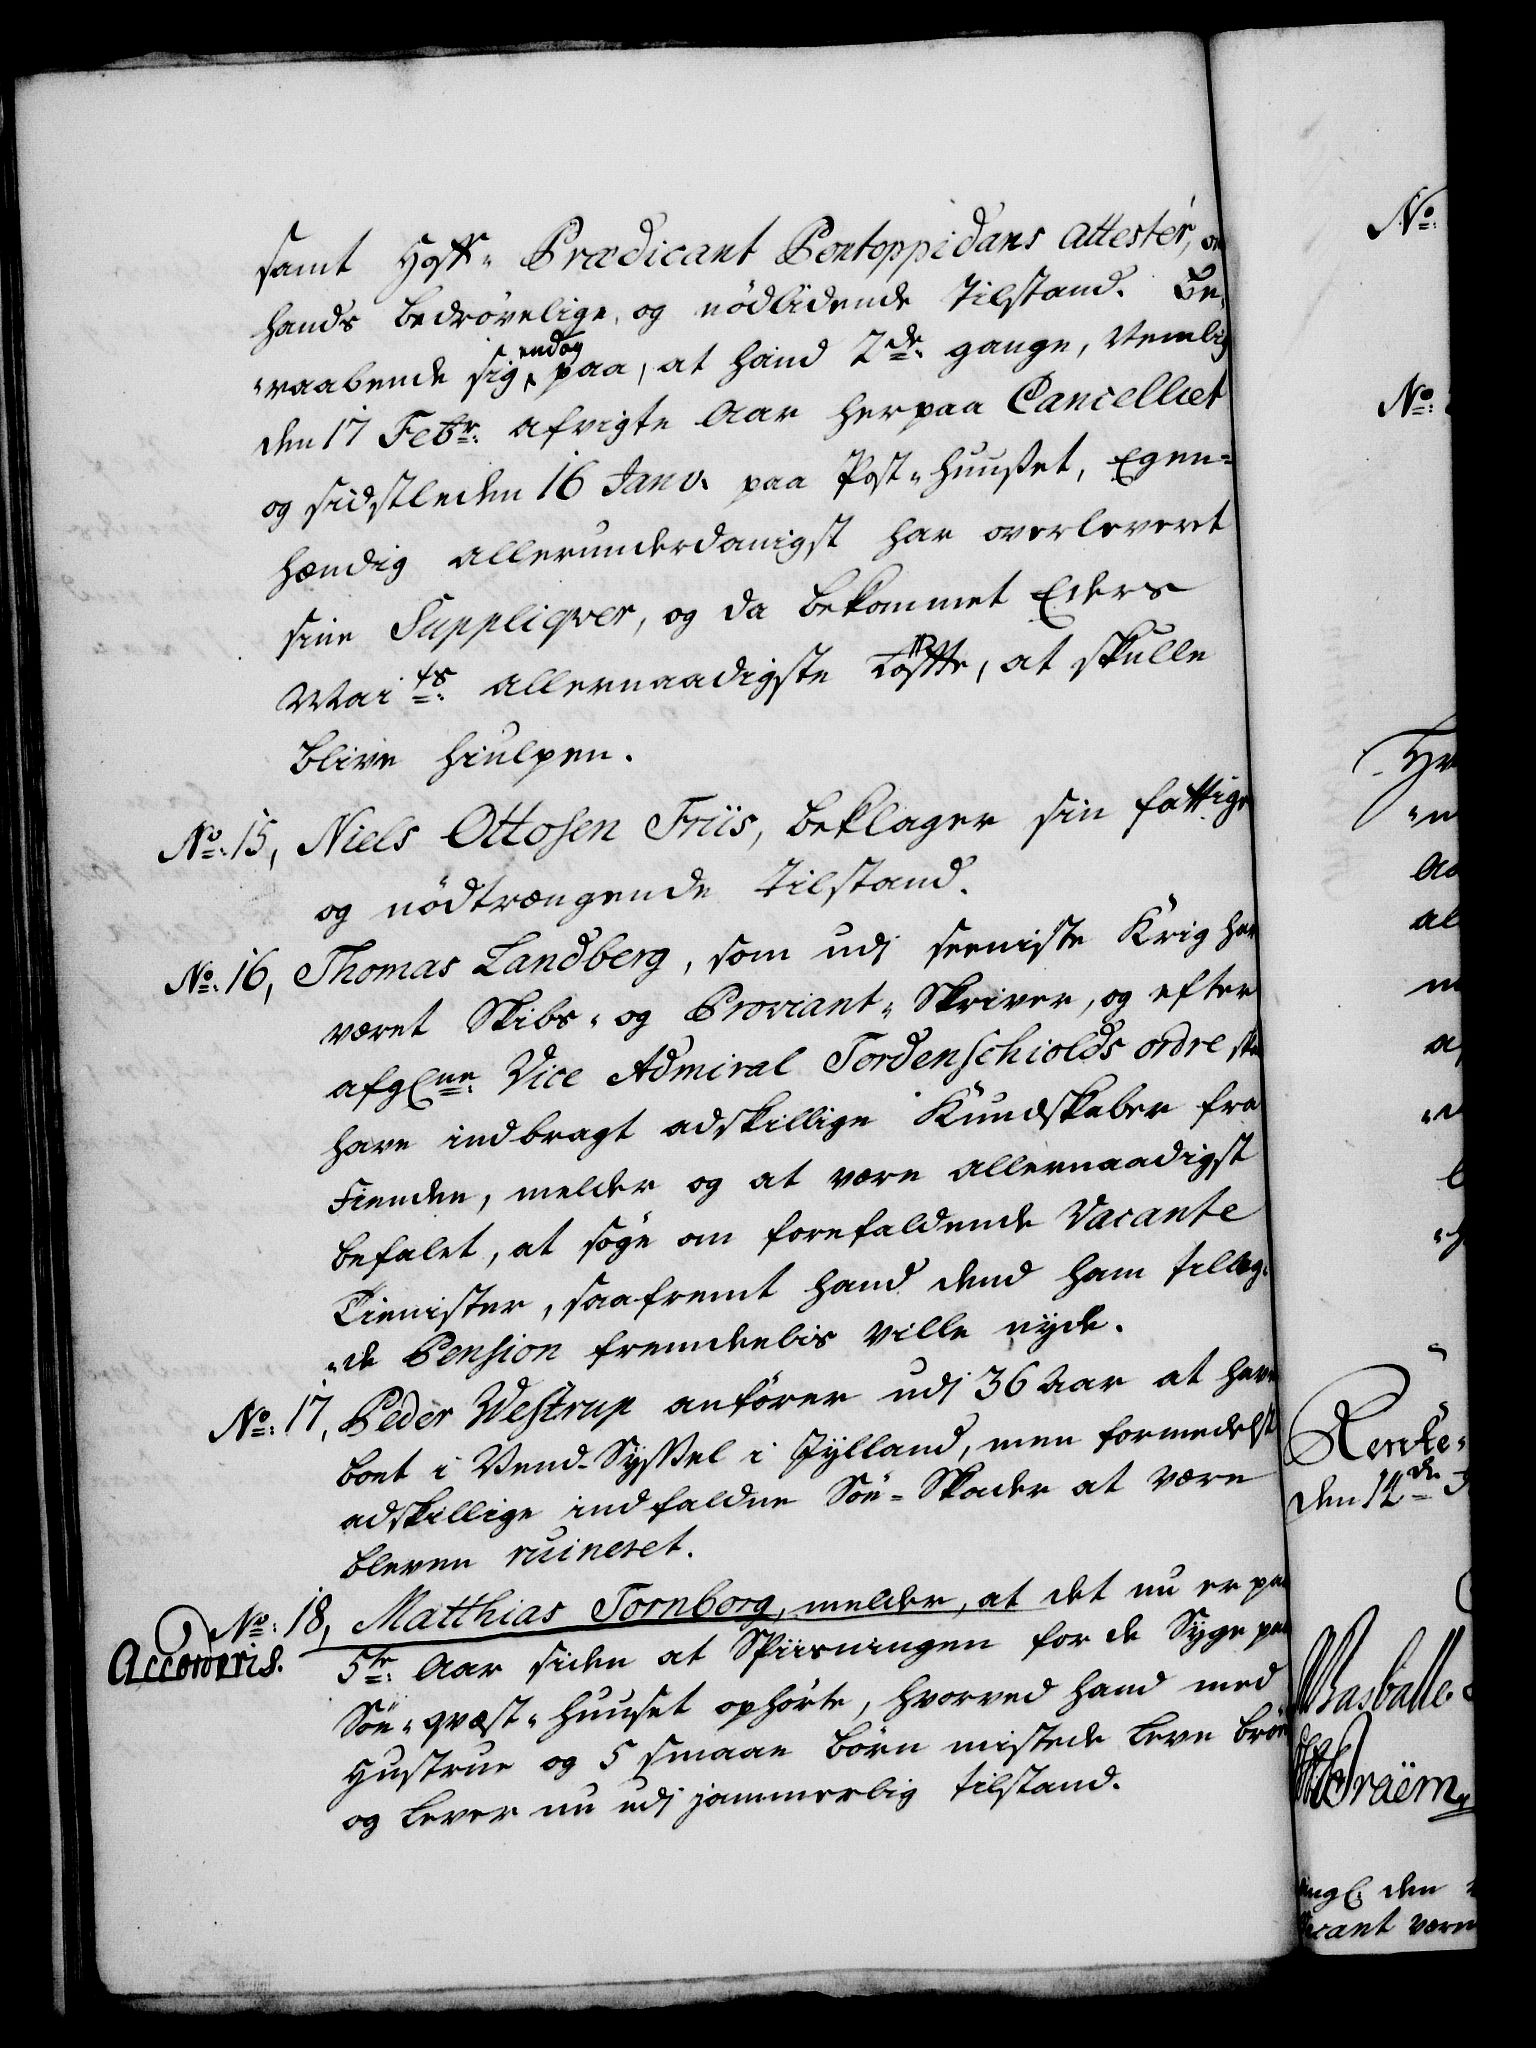 samt Hoff- Prædicant Pontoppidans attester, om
hands bedrøvelige, og nødlidende Tilstand. Be-
-raabende sig endog paa, at hand 2de. gange, Nemlig
den 17 Febr. afvigte Aar herpaa Cancelliet
og sidstleden 16 Janv. paa Post-Huuset, Egen-
hændig allerunderdanigst har overleveret
sine Suppliqver, og da bekommet Eders
Maits. allernaadigste Løffte, at skulle
blive hiulpen.
No. 15, Niels Ottosen Friis, beklager sin fattige
og nødtrængende Tilstand.
No. 16, Thomas Landberg, som udj seeniste Krig har
været Skibs- og Proviant-Skriver, og efter
afgl.ne Vice Admiral Tordenschiolds ordre skal
have indbragt adskillige Kundskaber fra
Fienden, melder og at være allernaadigst
befalet, at søge om forefaldende Vacante
Tienister, saafremt hand dend ham tillag-
-de Pension fremdeelis ville nyde.
No. 17, Peder Westrup anfører udj 36 Aar at have
boet i Vend-Syssel i Jylland, men formedelst
adskillige indfaldne Søe-Skader at være
bleven ruineret.
No. 18, Matthias Tornborg, melder, at det nu er paa
Accorderis.
5te. Aar siden at Spiisningen for de Syge paa
Søe-qvæst-Huuset ophørte, hvorved hand med
Hustrue og 5 smaae Børn mistede leve brød
og lever nu udj jammerlig Tilstand.
No.
No.
Rente-
den 12de
Wasballe
Fraëm
ingl. den
vacant være